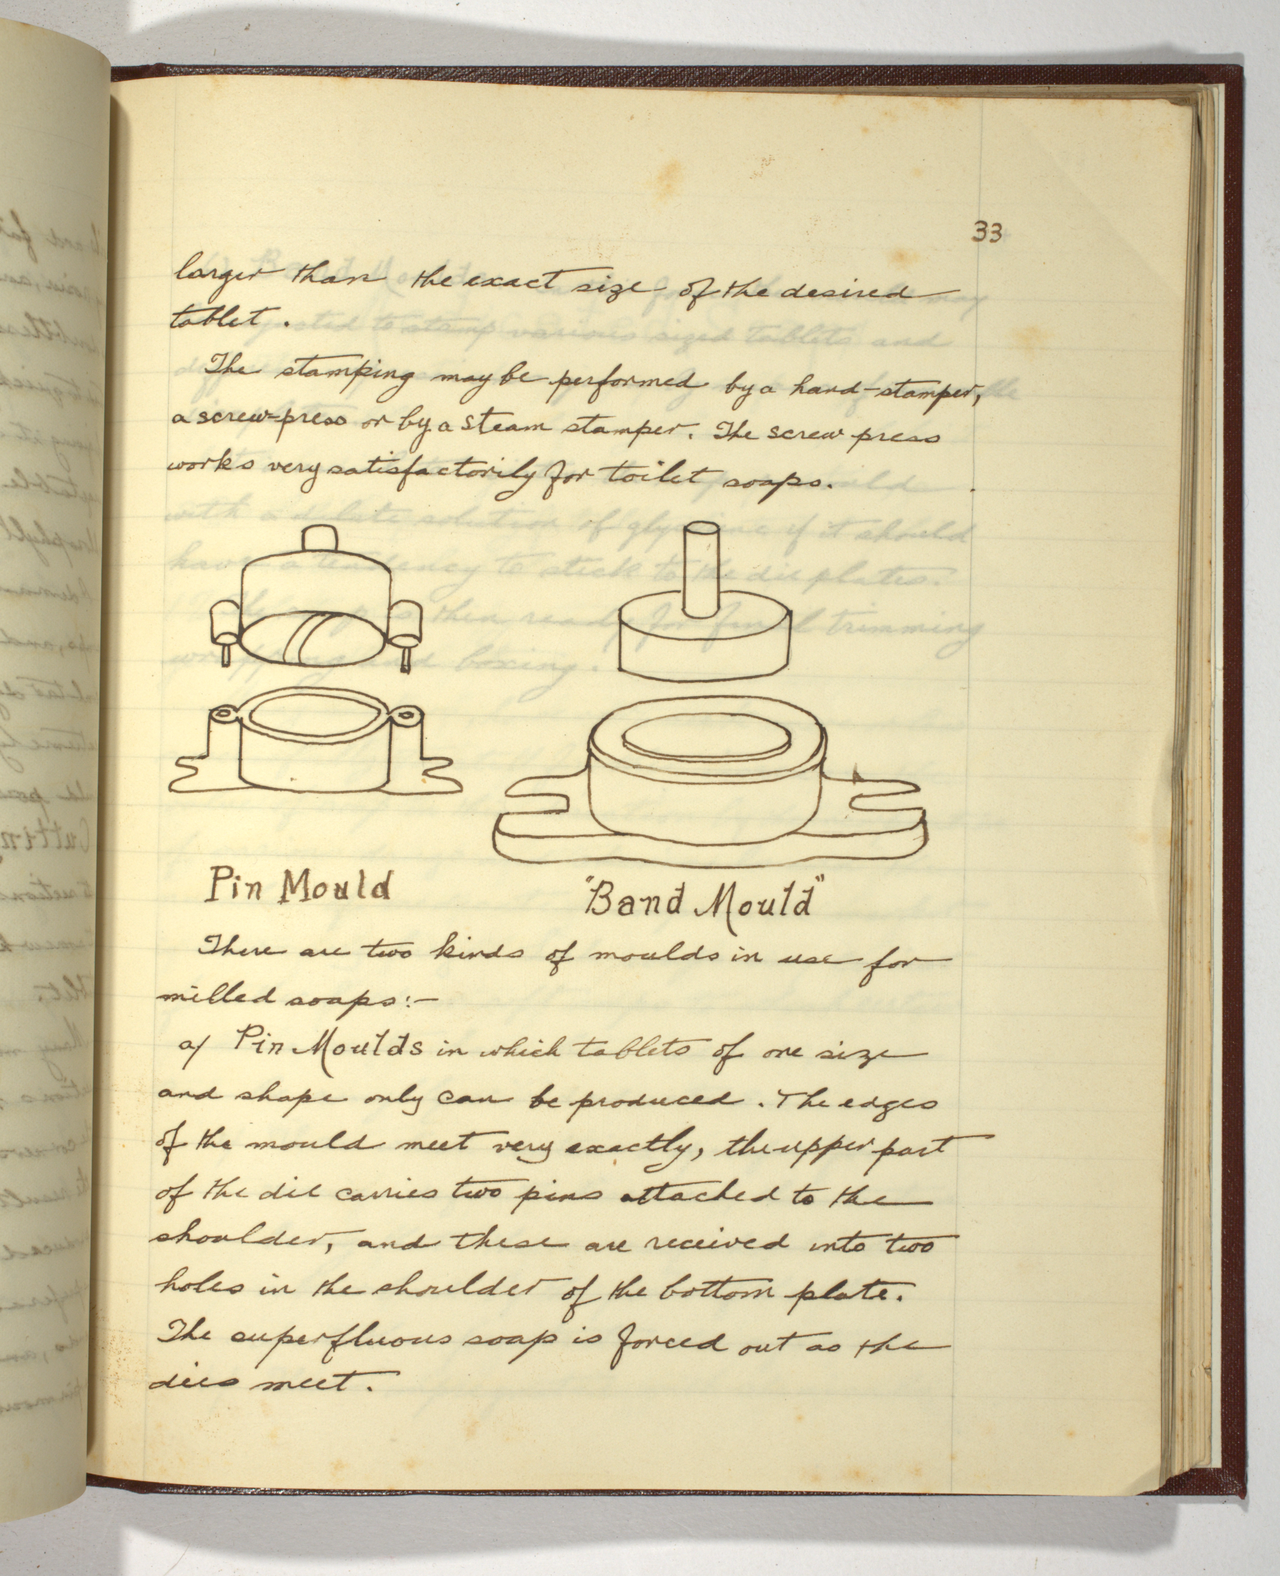 33
larger than the exact size of the desired
tablet.
The stamping may be performed by a hand-stamper,
a screw-press or by a steam stamper. The screw press
works very satisfactorily for toilet soaps.
Pin Mould
"Band Mould"
There are two kinds of moulds in use for
milled soaps:-
a/ Pin Moulds in which tablets of one size
and shape only can be produced. The edges
of the mould meet very exactly, the upper part
of the die carries two pins attached to the
shoulder, and these are received into two
holes in the shoulder of the bottom plate.
The superfluous soap is forced out as the
dies meet.